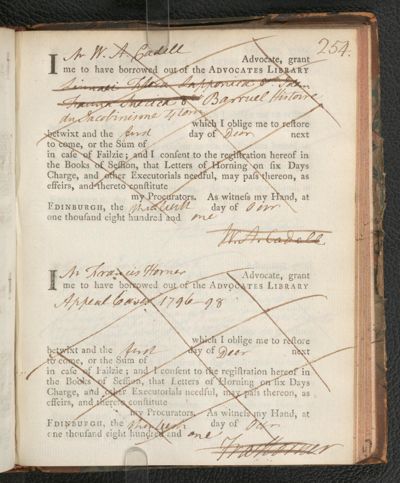 254.
I Mr W. A. Cadell Advocate, grant
me to have borrowed out of the ADVOCATES LIBRARY
Linnæi Flora Lapponica &
Fauna Suecica & Barruel Histoire
du Jacobinisme 4 tom
which I oblige me to restore
betwixt and the first day of Decr next
to come, or the Sum of
in case of Failzie; and I consent to the registration hereof in
the Books of Session, that Letters of Horning on six Days
Charge, and other Executorials needful, may pass thereon, as
effeirs, and thereto constitute
my Procurators. As witness my Hand, at
EDINBURGH, the day of
one thousand eight hundred and one
W. A. Cadell
I Mr Francis Horner Advocate, grant
me to have borrowed out of the ADVOCATES LIBRARY
Appeal Cases 1796-98
which I oblige me to restore
betwixt and the first day of Decr next
to come, or the Sum of
in case of Failzie; and I consent to the registration hereof in
the Books of Session, that Letters of Horning on six Days
Charge, and other Executorials needful, may pass thereon, as
effeirs, and thereto constitute
my Procurators. As witness my Hand, at
EDINBURGH, the day of
one thousand eight hundred and one
Fra Horner